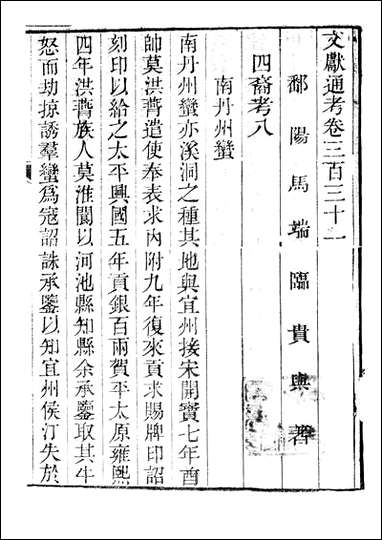 文獻通考卷三百三十一
鄱陽馬端臨貴與著
四裔考八
南丹州蠻
南丹州蠻亦溪洞之種其地與宜州接宋開寶七年酋
帥莫洪𦟛遣使奉表求內附九年復來貢求賜牌印詔
刻印以給之太平興國五年貢銀百兩賀平太原雍熙
四年洪𦟛族人莫淮閬以河池縣知縣余承鑒取其牛
怒而劫掠誘羣蠻為寇詔誅承鑒以知宜州侯汀失於